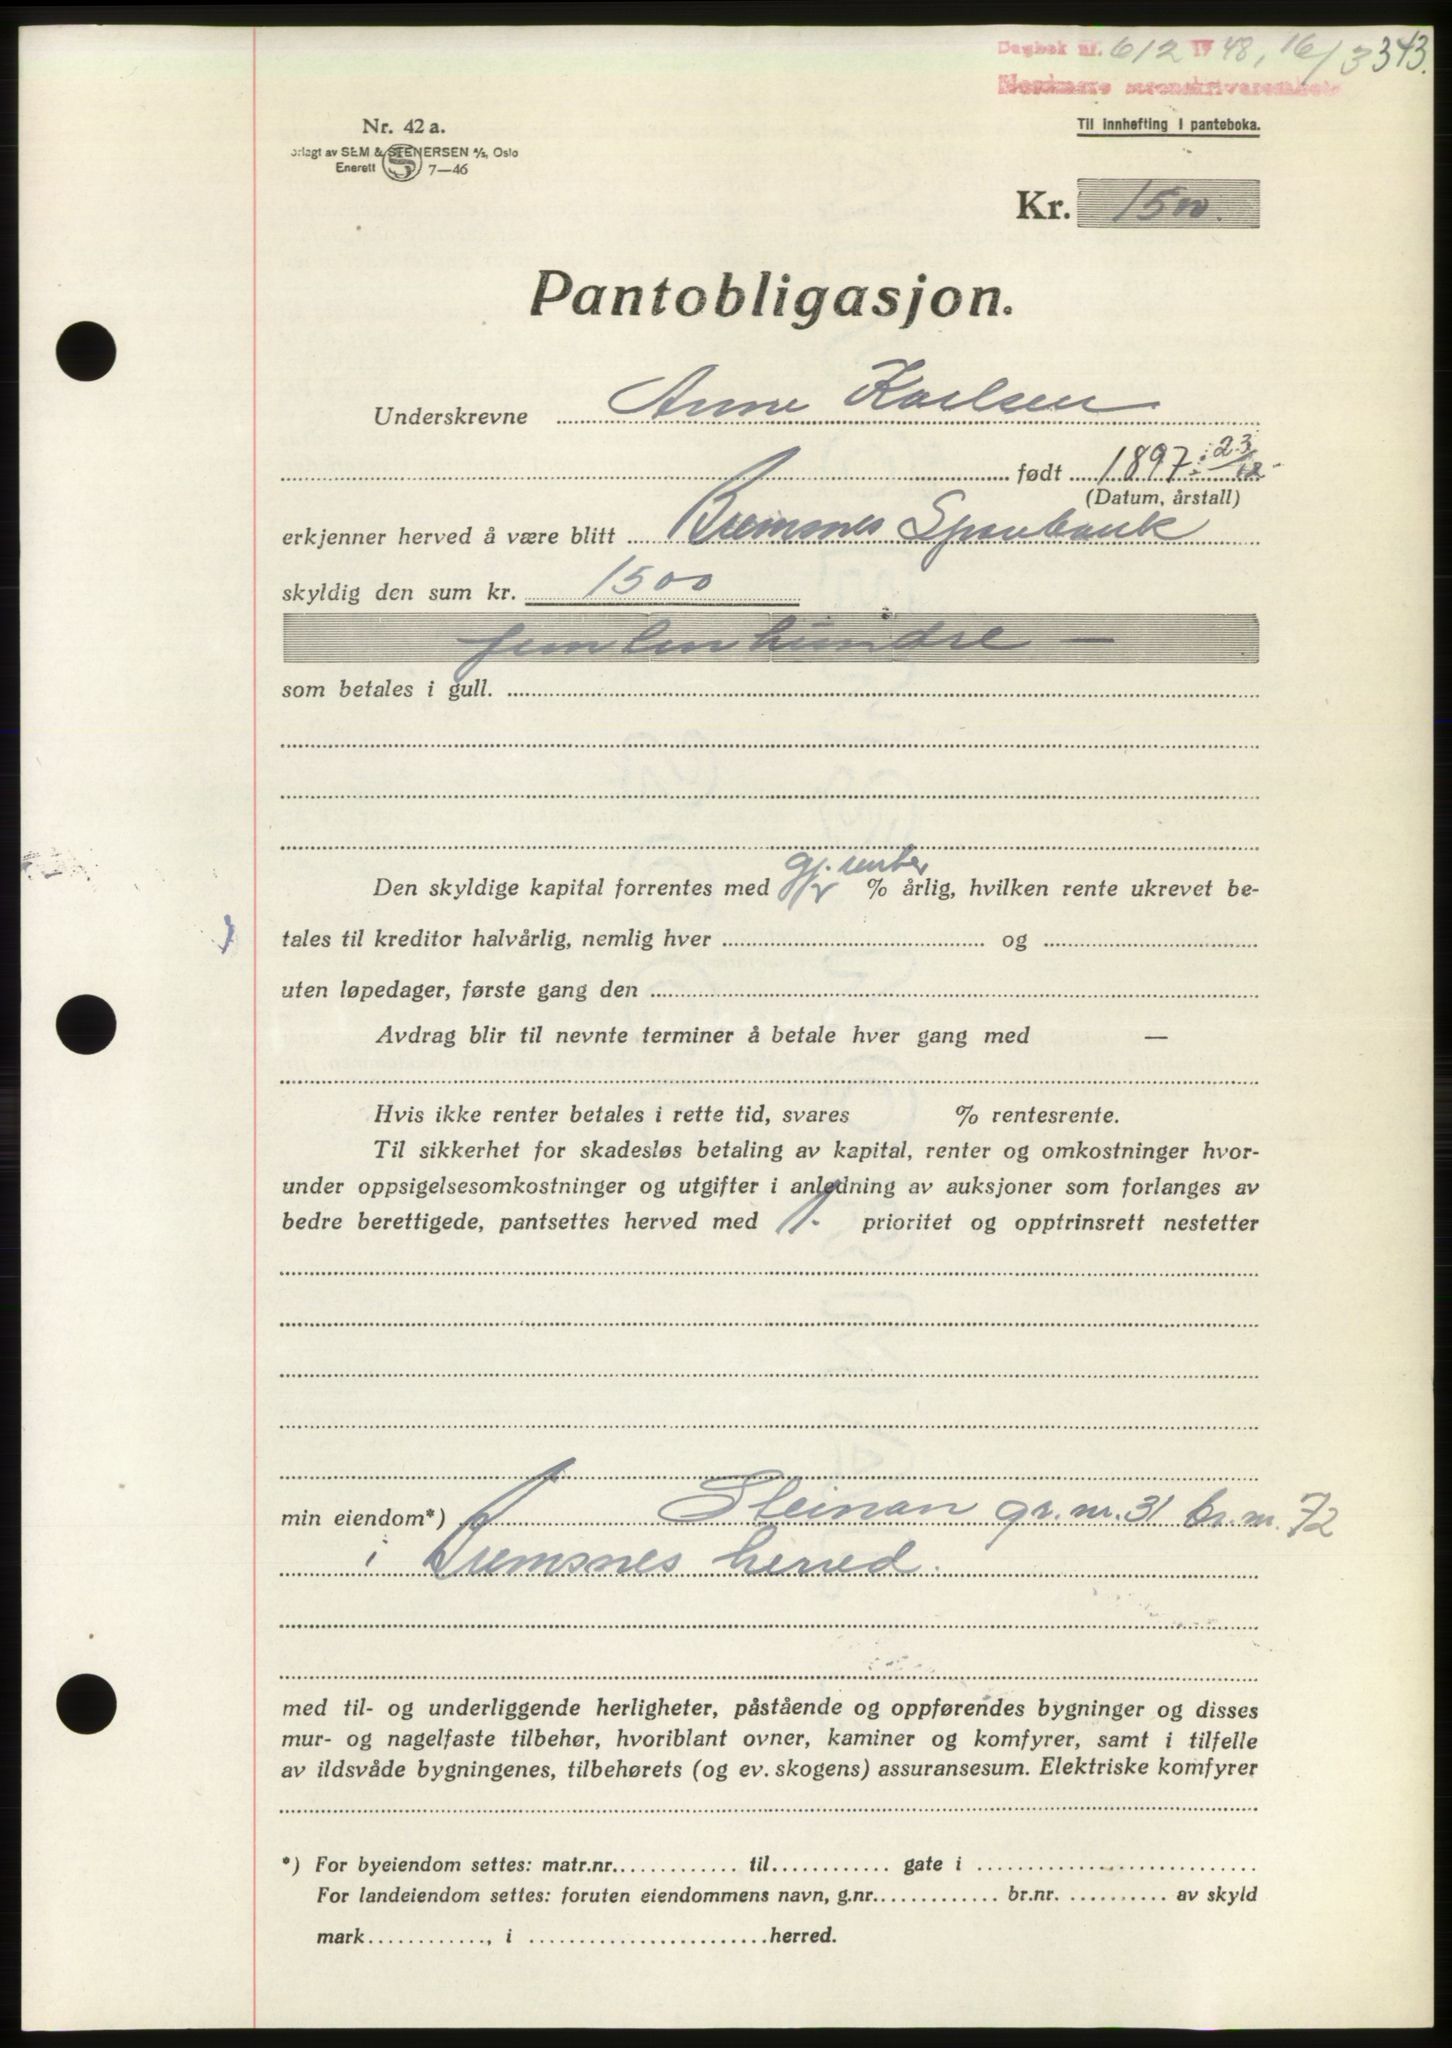 Dagbok nr. 612 1948, 16/3 343.
Nordmøre sorenskriverembete
Nr. 42 a.
Til innhefting i panteboka.
orlagt av SEM & STENERSEN A/S, Oslo
Enerett S 7—46
Kr. 1500.
Pantobligasjon.
Underskrevne Anne Karlsen
født 1897 23/12
(Datum, årstall)
erkjenner herved å være blitt Bremsnes Sparebank
skyldig den sum kr. 1500
femtenhundre —
som betales i gull.
gj. renter
Den skyldige kapital forrentes med % årlig, hvilken rente ukrevet be-
tales til kreditor halvårlig, nemlig hver og
uten løpedager, første gang den
Avdrag blir til nevnte terminer å betale hver gang med —
Hvis ikke renter betales i rette tid, svares % rentesrente.
Til sikkerhet for skadesløs betaling av kapital, renter og omkostninger hvor-
under oppsigelsesomkostninger og utgifter i anledning av auksjoner som forlanges av
bedre berettigede, pantsettes herved med 1. prioritet og opptrinsrett nestetter
min eiendom*) Steinan gr. nr. 31 br. nr. 72
i Bremsnes herred.
med til- og underliggende herligheter, påstående og oppførendes bygninger og disses
mur- og nagelfaste tilbehør, hvoriblant ovner, kaminer og komfyrer, samt i tilfelle
av ildsvåde bygningenes, tilbehørets (og ev. skogens) assuransesum. Elektriske komfyrer
*) For byeiendom settes: matr.nr. til gate i
For landeiendom settes: foruten eiendommens navn, g.nr. br.nr. av skyld
mark , i herred.